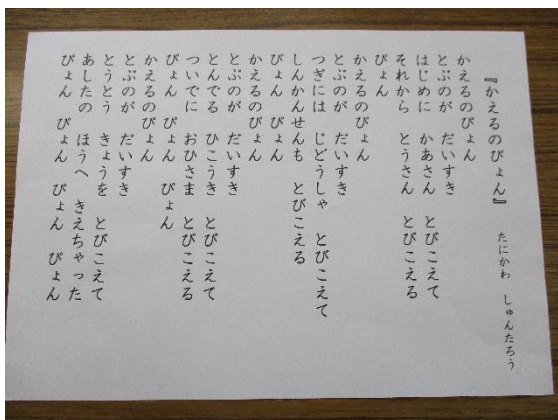 『かえるのぴょん』
たにかわ しゅんたろう
かえるのぴょん
とぶのが だいすき
はじめに かあさん とびこえて
それから とうさん とびこえる
ぴょん
かえるのぴょん
とぶのが だいすき
つぎには じどうしゃ とびこえて
しんかんせんも とびこえる
ぴょん ぴょん
かえるのぴょん
とぶのが だいすき
とんでる ひこうき とびこえて
ついでに おひさま とびこえる
ぴょん ぴょん ぴょん
かえるのぴょん
とぶのが だいすき
とうとう きょうを とびこえて
あしたの ほうへ きえちゃった
ぴょん ぴょん ぴょん ぴょん